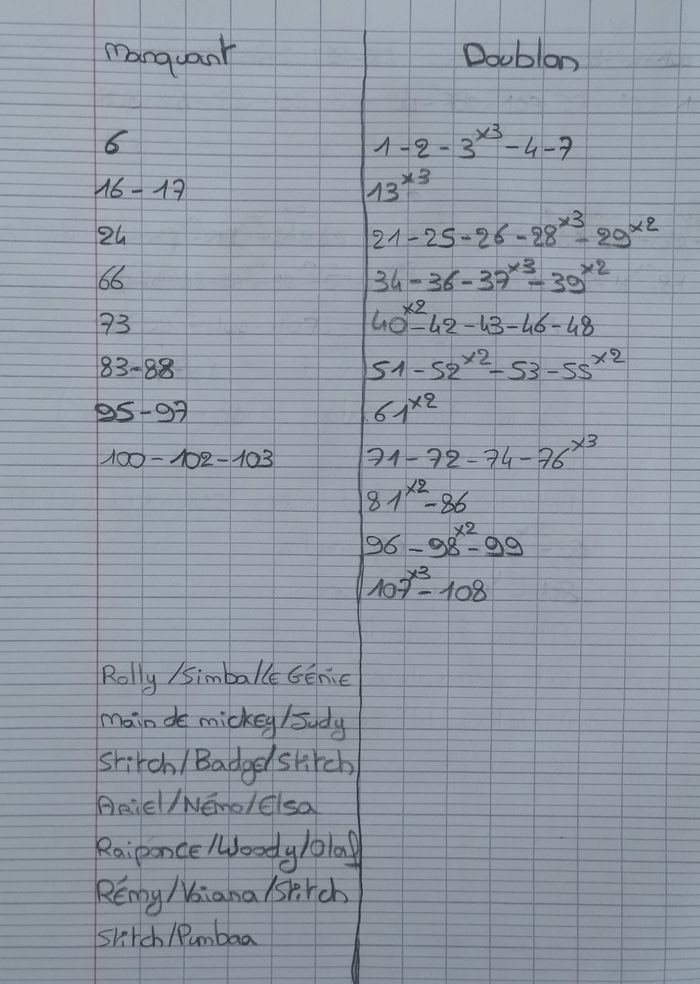 Manquant
Doublon
6
1 - 2 - 3 x3 - 4 - 7
16 - 17
13 x3
24
21 - 25 - 26 - 28 x3 - 29 x2
66
34 - 36 - 37 x3 - 39 x2
73
40 x2 - 42 - 43 - 46 - 48
83-88
51 - 52 x2 - 53 - 55 x2
95-97
61 x2
100 - 102 - 103
71 - 72 - 74 - 76 x3
81 x2 - 86
96 - 98 x2 - 99
107 x3 - 108
Rolly / Simba / LE GÉNiE
main de mickey / Judy
Stitch / Badge / Stitch
ARiEl / NÉmo / Elsa
RaiponcE / Woody / Olaf
RÉmy / Vaiana / Stitch
Stitch / Pumbaa